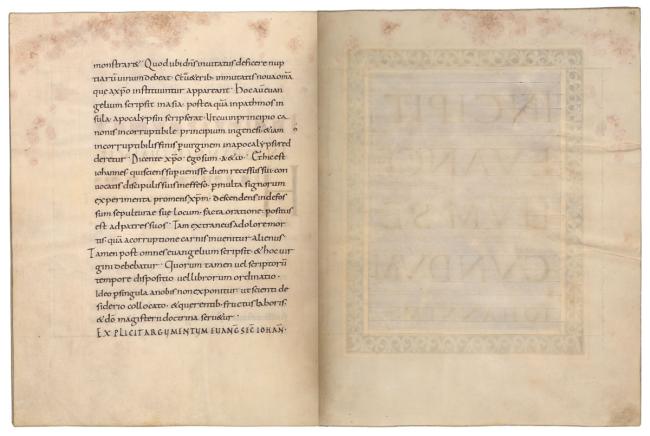 monstraret· Quod ubi dñs inuitatus deficere nup
tiarũ uinum debeat· Et ueterib; inmutatis noua omã
quae a xp̃o instituuntur appareant· Hoc aut̃ euan
gelium scripsit in asia· postea quã in pathmos in
sula apocalypsin scripserat· Ut cui in principio ca
nonis incorruptibile principium in genesi· & iam
incorruptibilis finis p uirginem in apocalypsi red
deretur· Dicente xp̃o· Ego sum· α & ω· Et hic est
iohannes qui sciens supuenisse diem recessus sui· con
uocatis discipulis suis in efeso· p multa signorum
experimenta promens xp̃m· descendens in defos
sum sepulturae suae locum· facta oratione· positus
est ad patres suos· Tam extraneus a dolore mor
tis· quã a corruptione carnis inuenitur alienus·
Tamen post omnes euangelium scripsit· & hoc uir
gini debebatur· Quorum tamen uel scriptorũ
tempore dispositio uel librorum ordinatio·
Ideo p singula a nobis non exponitur· ut scienti de
siderio collocato· & querentib· fructus laboris·
& dõ magisterii doctrina seruetur·
EXPLICIT ARGUMENTUM EUANG̃ SEC̃ IOHAN̄·